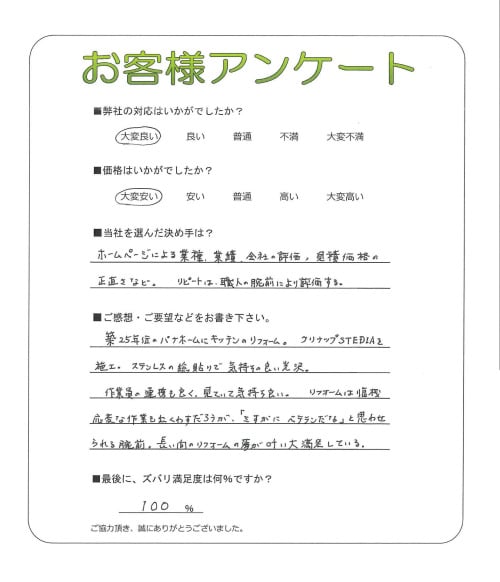 お客様アンケート
■弊社の対応はいかがでしたか？
大変良い 良い 普通 不満 大変不満
■価格はいかがでしたか？
大変安い 安い 普通 高い 大変高い
■当社を選んだ決め手は？
ホームページによる業種、業績、会社の評価、見積価格の
正直さなど。 リピートは、職人の腕前により評価する。
■ご感想・ご要望などをお書き下さい。
築25年位のパナホームにキッチンのリフォーム。 クリナップSTEDIAを
施工。ステンレスの総貼りで気持ちの良い光沢。
作業員の連携も良く、見ていて気持ち良い。 リフォームは臨機
応変な作業も出くわすだろうが、「さすがにベテランだな」と思わせ
られる腕前。長い間のリフォームの夢が叶い大満足している。
■最後に、ズバリ満足度は何％ですか？
100 %
ご協力頂き、誠にありがとうございました。